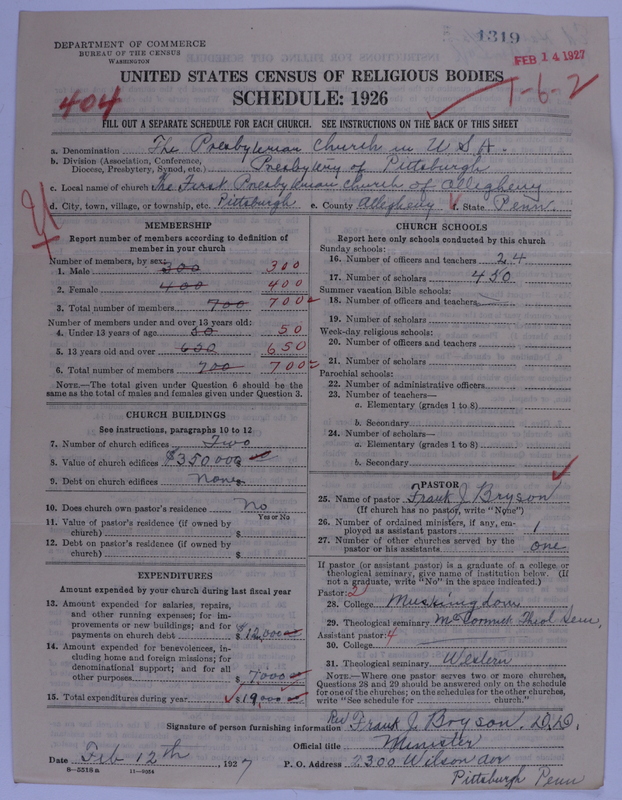 DEPARTMENT OF COMMERCE
BUREAU OF THE CENSUS
WASHINGTON
1319
FEB 14 1927
UNITED STATES CENSUS OF RELIGIOUS BODIES
SCHEDULE: 1926
404
1-6-2
FILL OUT A SEPARATE SCHEDULE FOR EACH CHURCH. SEE INSTRUCTIONS ON THE BACK OF THIS SHEET
a. Denomination The Presbyterian Church in U S A.
b. Division (Association, Conference, Diocese, Presbytery, Synod, etc.) Presbytery of Pittsburgh
c. Local name of church The First Presbyterian Church of Allegheny
d. City, town, village, or township, etc. Pittsburgh e. County Allegheny f. State Penn.
MEMBERSHIP
Report number of members according to definition of member in your church
Number of members, by sex:
1. Male 300 300
2. Female 400 400
3. Total number of members 700 700
Number of members under and over 13 years old:
4. Under 13 years of age 50 50
5. 13 years old and over 650 650
6. Total number of members 700 700
NOTE.—The total given under Question 6 should be the same as the total of males and females given under Question 3.
CHURCH BUILDINGS
See instructions, paragraphs 10 to 12
7. Number of church edifices Two
8. Value of church edifices $350000
9. Debt on church edifices None
10. Does church own pastor's residence No
Yes or No
11. Value of pastor's residence (if owned by church) $
12. Debt on pastor's residence (if owned by church) $
EXPENDITURES
Amount expended by your church during last fiscal year
13. Amount expended for salaries, repairs, and other running expenses; for improvements or new buildings; and for payments on church debt $12,000
14. Amount expended for benevolences, including home and foreign missions; for denominational support; and for all other purposes $7000
15. Total expenditures during year $19,000
CHURCH SCHOOLS
Report here only schools conducted by this church
Sunday schools:
16. Number of officers and teachers 24
17. Number of scholars 450
Summer vacation Bible schools:
18. Number of officers and teachers
19. Number of scholars
Week-day religious schools:
20. Number of officers and teachers
21. Number of scholars
Parochial schools:
22. Number of administrative officers
23. Number of teachers—
a. Elementary (grades 1 to 8)
b. Secondary
24. Number of scholars—
a. Elementary (grades 1 to 8)
b. Secondary
PASTOR
25. Name of pastor Frank J. Bryson
(If church has no pastor, write "None")
26. Number of ordained ministers, if any, employed as assistant pastors 1
27. Number of other churches served by the pastor or his assistants one
If pastor (or assistant pastor) is a graduate of a college or theological seminary, give name of institution below. (If not a graduate, write "No" in the space indicated.)
Pastor: 2
28. College Muskingdom
29. Theological seminary McCormick Theol Sem,
Assistant pastor: 4
30. College
31. Theological seminary Western
NOTE.—Where one pastor serves two or more churches, Questions 28 and 29 should be answered only on the schedule for one of the churches; on the schedules for the other churches, write "See schedule for church."
Signature of person furnishing information Rev Frank J. Bryson. D.D.
Official title Minister
Date Feb 12th 1927 P. O. Address 2300 Wilson
8-5518a 11-9054
Pittsburgh Penn